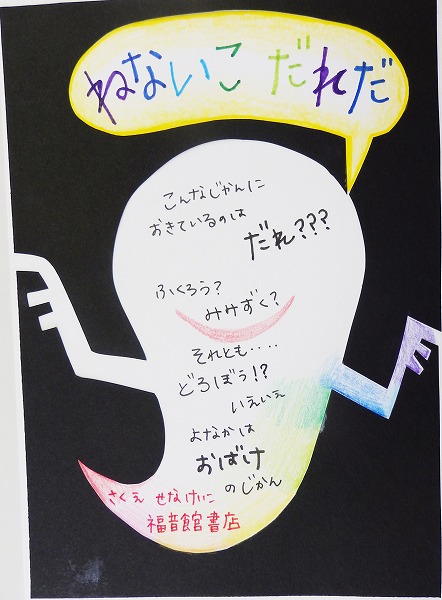 ねないこ だれだ
こんなじかんに
おきているのは
だれ???
ふくろう?
みみずく?
それとも・・・・・
どろぼう!?
いえいえ
よなかは
おばけ
のじかん
さく・え せなけいこ
福音館書店